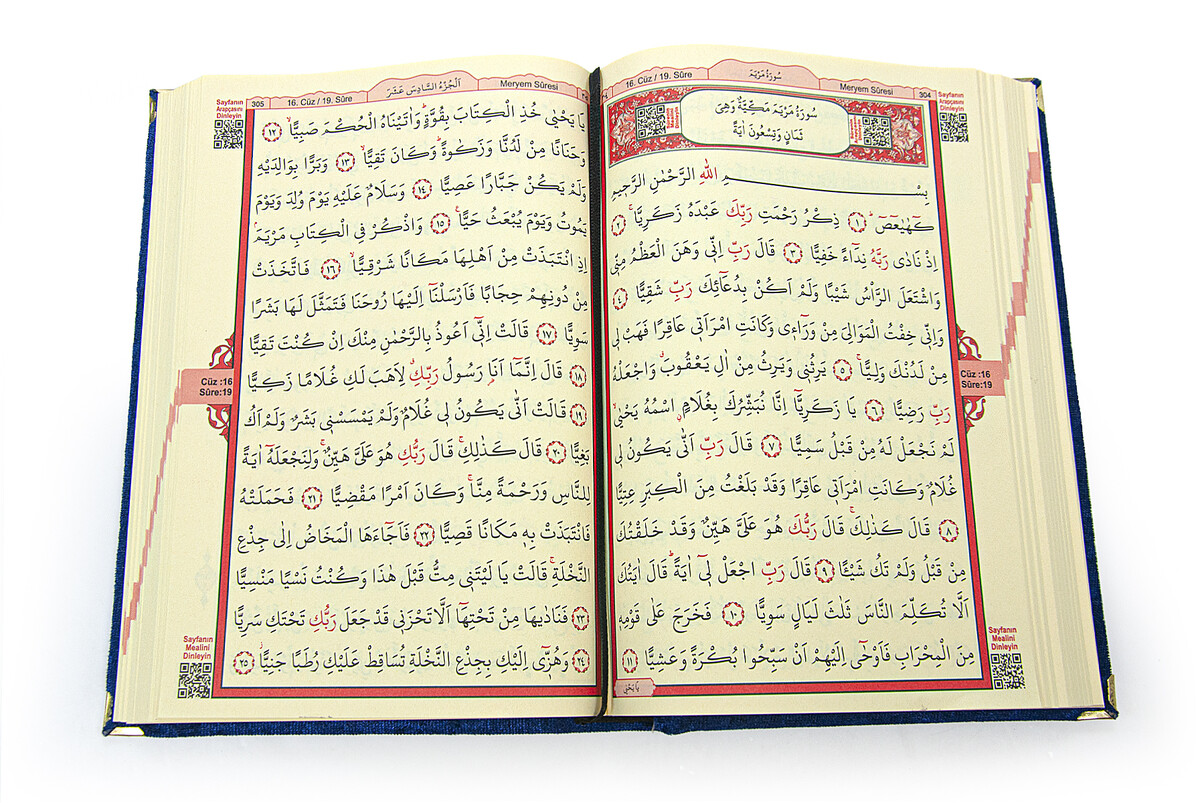 304
Meryem Sûresi
سُورَةُ مَرْيَمَ
16. Cüz / 19. Sûre
Sayfanın
Arapçasını
Dinleyin
سُورَةُ مَرْيَمَ مَكِّيَّةٌ وَهِيَ
ثَمَانٍ وَتِسْعُونَ اٰيَةً
بِسْــــــمِ اللّٰهِ الرَّحْمٰنِ الرَّحِيمِ
كٓهٰيٰعٓصٓ ﴿١﴾ ذِكْرُ رَحْمَتِ رَبِّكَ عَبْدَهُ زَكَرِيَّاۚ ﴿٢﴾
اِذْ نَادٰى رَبَّهُ نِدَٓاءً خَفِيًّا ﴿٣﴾ قَالَ رَبِّ اِنّ۪ي وَهَنَ الْعَظْمُ مِنّ۪ي
وَاشْتَعَلَ الرَّأْسُ شَيْبًا وَلَمْ اَكُنْ بِدُعَٓائِكَ رَبِّ شَقِيًّا ﴿٤﴾
وَاِنّ۪ي خِفْتُ الْمَوَالِيَ مِنْ وَرَٓاء۪ي وَكَانَتِ امْرَاَت۪ي عَاقِرًا فَهَبْ ل۪ي
مِنْ لَدُنْكَ وَلِيًّاۙ ﴿٥﴾ يَرِثُن۪ي وَيَرِثُ مِنْ اٰلِ يَعْقُوبَۗ وَاجْعَلْهُ
رَبِّ رَضِيًّا ﴿٦﴾ يَا زَكَرِيَّٓا اِنَّا نُبَشِّرُكَ بِغُلَامٍۨ اسْمُهُ يَحْيٰىۙ
لَمْ نَجْعَلْ لَهُ مِنْ قَبْلُ سَمِيًّا ﴿٧﴾ قَالَ رَبِّ اَنّٰى يَكُونُ ل۪ي
غُلَامٌ وَكَانَتِ امْرَاَت۪ي عَاقِرًا وَقَدْ بَلَغْتُ مِنَ الْكِبَرِ عِتِيًّا
﴿٨﴾ قَالَ كَذٰلِكَۚ قَالَ رَبُّكَ هُوَ عَلَيَّ هَيِّنٌ وَقَدْ خَلَقْتُكَ
مِنْ قَبْلُ وَلَمْ تَكُ شَيْـًٔا ﴿٩﴾ قَالَ رَبِّ اجْعَلْ ل۪ٓي اٰيَةًۜ قَالَ اٰيَتُكَ
اَلَّا تُكَلِّمَ النَّاسَ ثَلٰثَ لَيَالٍ سَوِيًّا ﴿١٠﴾ فَخَرَجَ عَلٰى قَوْمِه۪
مِنَ الْمِحْرَابِ فَاَوْحٰٓى اِلَيْهِمْ اَنْ سَبِّحُوا بُكْرَةً وَعَشِيًّا ﴿١١﴾
يَا يَحْيٰى
Cüz :16
Sûre:19
Sayfanın
Mealini
Dinleyin
Meryem Sûresi
اَلْجُزْءُ السَّادِسُ عَشَرَ
16. Cüz / 19. Sûre
305
Sayfanın
Arapçasını
Dinleyin
يَا يَحْيٰى خُذِ الْكِتَابَ بِقُوَّةٍۜ وَاٰتَيْنَاهُ الْحُكْمَ صَبِيًّاۙ ﴿١٢﴾
وَحَنَانًا مِنْ لَدُنَّا وَزَكٰوةًۜ وَكَانَ تَقِيًّاۙ ﴿١٣﴾ وَبَرًّا بِوَالِدَيْهِ
وَلَمْ يَكُنْ جَبَّارًا عَصِيًّا ﴿١٤﴾ وَسَلَامٌ عَلَيْهِ يَوْمَ وُلِدَ وَيَوْمَ
يَمُوتُ وَيَوْمَ يُبْعَثُ حَيًّاۚ ﴿١٥﴾ وَاذْكُرْ فِي الْكِتَابِ مَرْيَمَۢ
اِذِ انْتَبَذَتْ مِنْ اَهْلِهَا مَكَانًا شَرْقِيًّاۙ ﴿١٦﴾ فَاتَّخَذَتْ
مِنْ دُونِهِمْ حِجَابًا فَاَرْسَلْنَٓا اِلَيْهَا رُوحَنَا فَتَمَثَّلَ لَهَا بَشَرًا
سَوِيًّا ﴿١٧﴾ قَالَتْ اِنّ۪ٓي اَعُوذُ بِالرَّحْمٰنِ مِنْكَ اِنْ كُنْتَ تَقِيًّا
﴿١٨﴾ قَالَ اِنَّمَٓا اَنَا۬ رَسُولُ رَبِّكِۗ لِاَهَبَ لَكِ غُلَامًا زَكِيًّا
﴿١٩﴾ قَالَتْ اَنّٰى يَكُونُ ل۪ي غُلَامٌ وَلَمْ يَمْسَسْن۪ي بَشَرٌ وَلَمْ اَكُ
بَغِيًّا ﴿٢٠﴾ قَالَ كَذٰلِكِۚ قَالَ رَبُّكِ هُوَ عَلَيَّ هَيِّنٌۚ وَلِنَجْعَلَهُٓ اٰيَةً
لِلنَّاسِ وَرَحْمَةً مِنَّاۚ وَكَانَ اَمْرًا مَقْضِيًّا ﴿٢١﴾ فَحَمَلَتْهُ
فَانْتَبَذَتْ بِه۪ مَكَانًا قَصِيًّا ﴿٢٢﴾ فَاَجَٓاءَهَا الْمَخَاضُ اِلٰى جِذْعِ
النَّخْلَةِۚ قَالَتْ يَا لَيْتَن۪ي مِتُّ قَبْلَ هٰذَا وَكُنْتُ نَسْيًا مَنْسِيًّا
﴿٢٣﴾ فَنَادٰيهَا مِنْ تَحْتِهَٓا اَلَّا تَحْزَن۪ي قَدْ جَعَلَ رَبُّكِ تَحْتَكِ سَرِيًّا
﴿٢٤﴾ وَهُزّ۪ٓي اِلَيْكِ بِجِذْعِ النَّخْلَةِ تُسَاقِطْ عَلَيْكِ رُطَبًا جَنِيًّاۘ ﴿٢٥﴾
Cüz :16
Sûre:19
Sayfanın
Mealini
Dinleyin